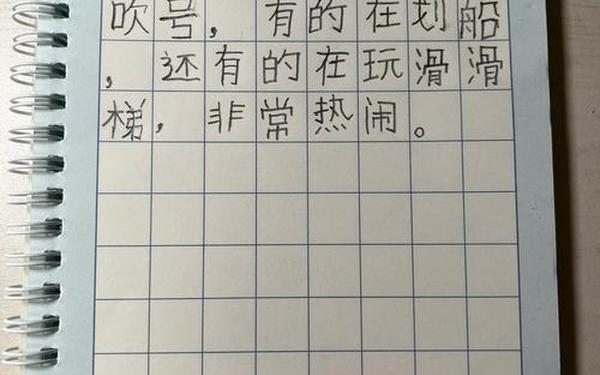 吹号，有的在划船
，还有的在玩滑滑
梯，非常热闹。